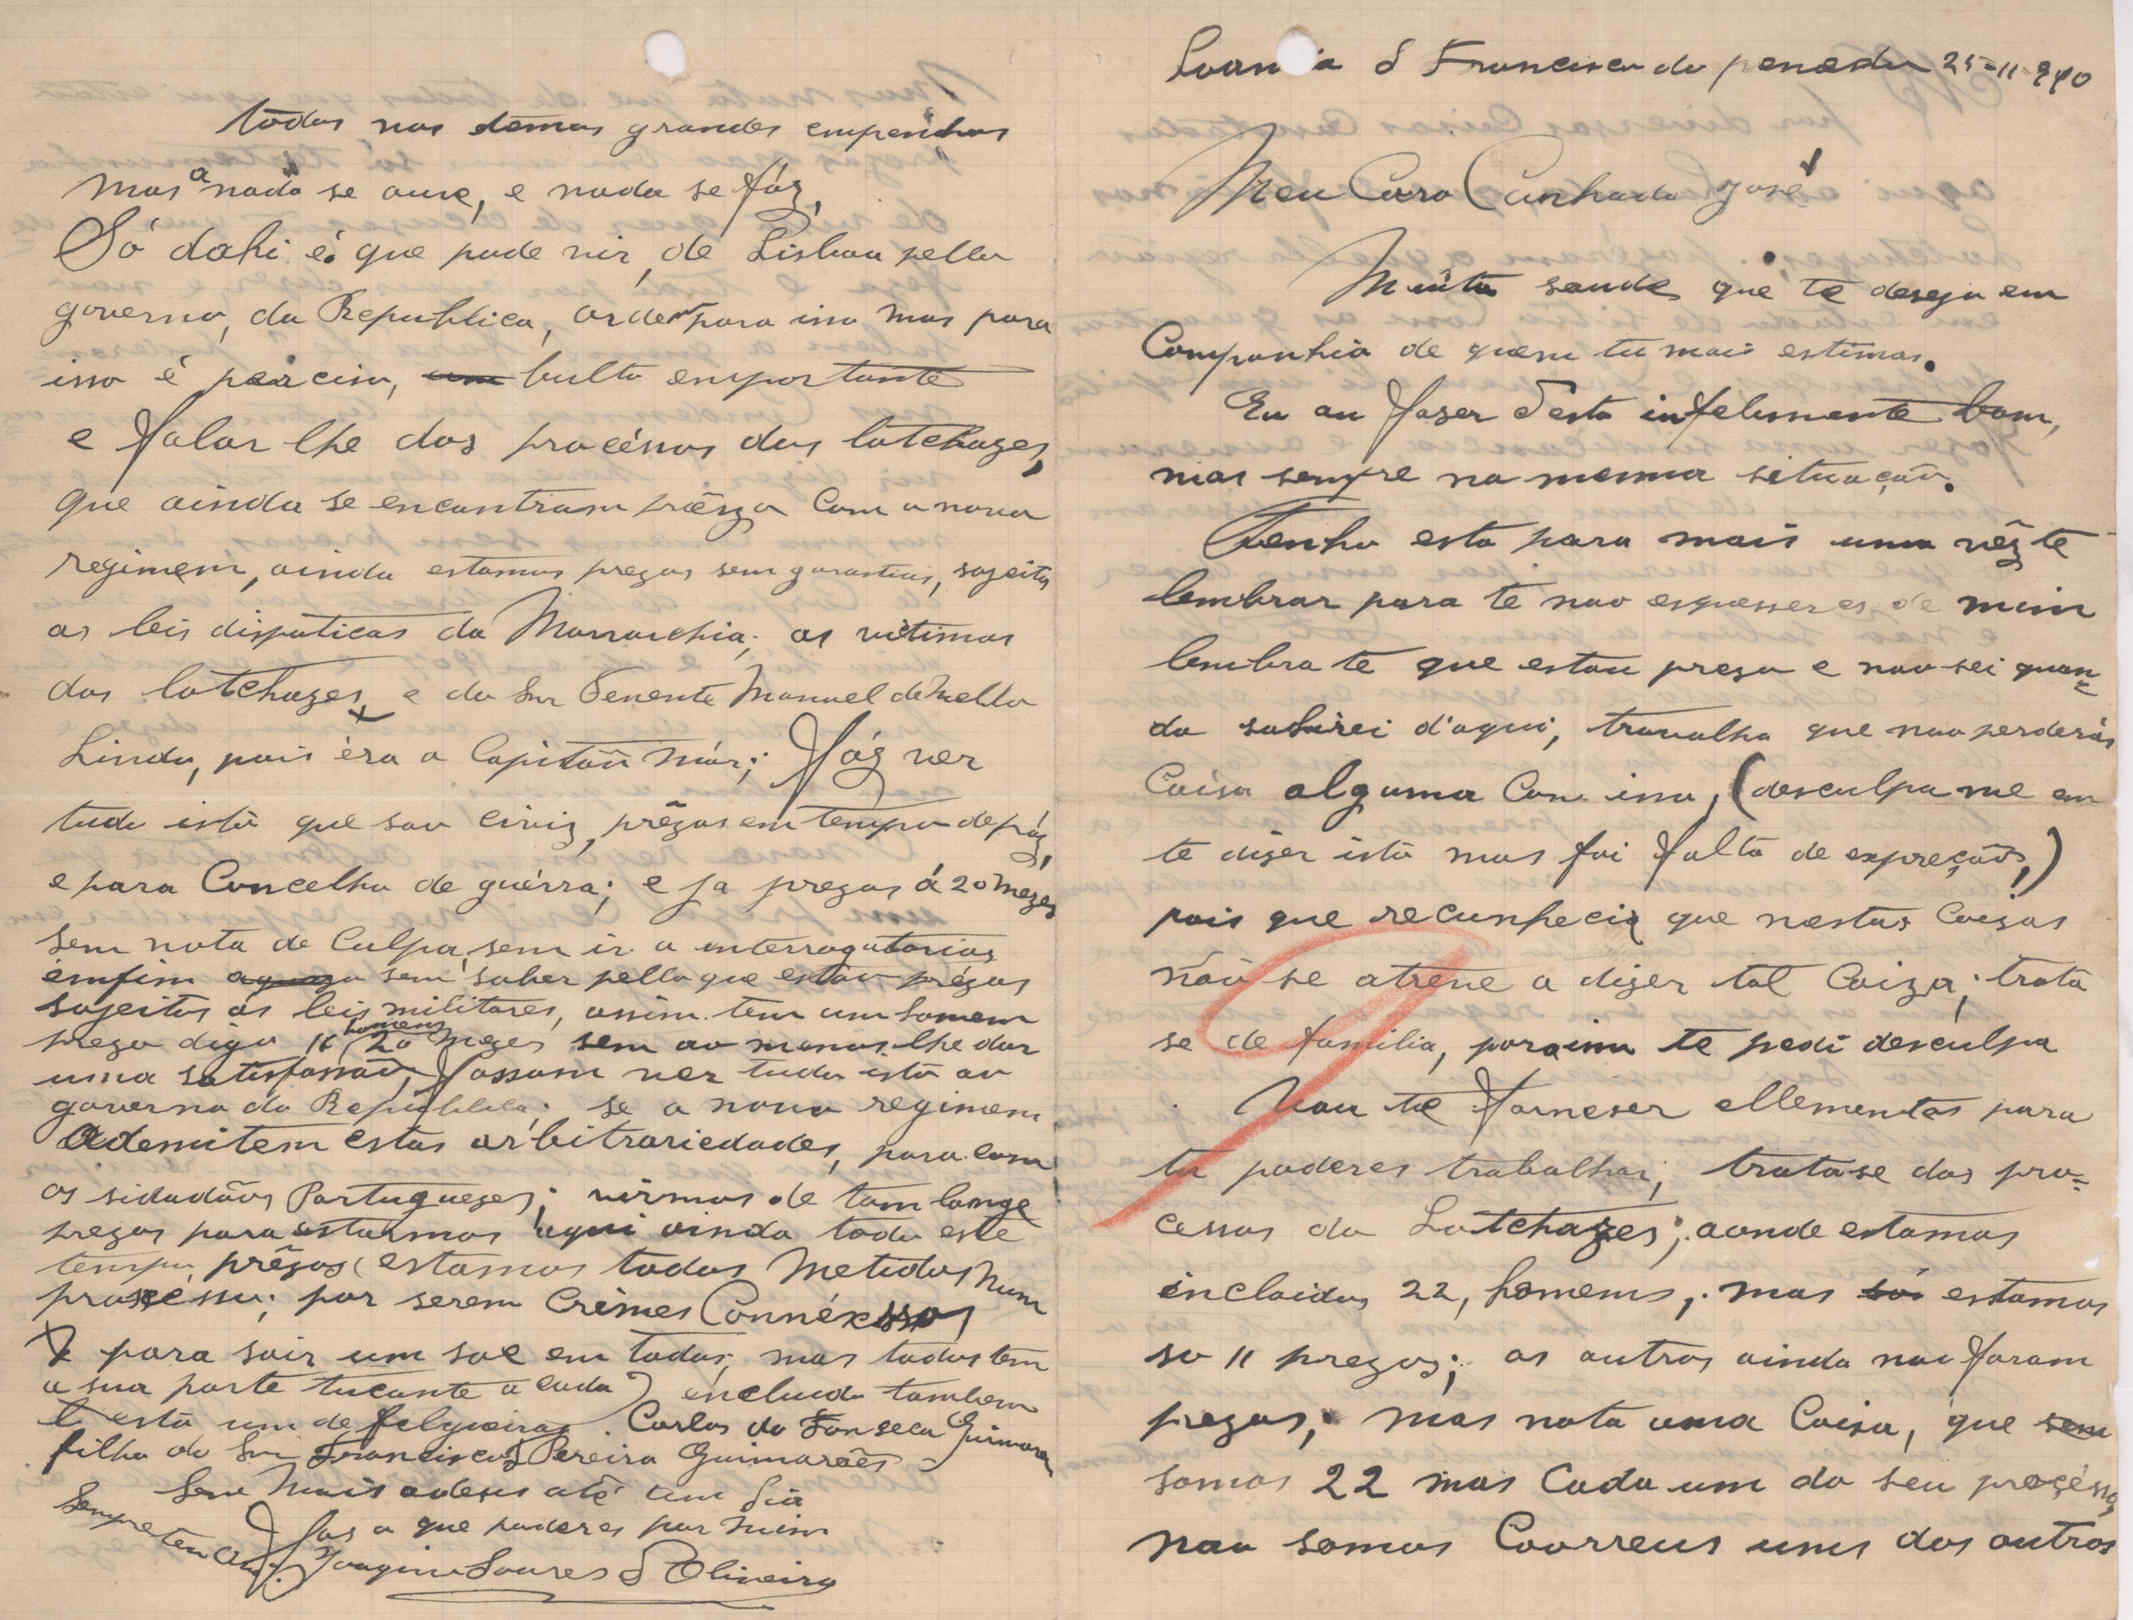 Loanda S Francisco do penedo 25-11-910
Meu Caro Cunhado José
Muita saude que te desejo em
Companhia de quem tu mais estimas.
Eu au faser d'esta infelismente bom,
mas sempre na mesma situação.
Tenho esta para mais uma vêz te
lembrar para te nao esquesseres de mim
lembra te que estou prezo e nao sei quan=
do sahirei d'aqui, travalha que nao perderás
Coisa alguma Con isso, (desculpa me em
te dizer isto mas foi falta de expreção,)
pois que recunheci que nestas Coisas
não se atreve a dizer tal Coiza; trata
se de familia, por isso te pedi desculpa
Vou te fornesser ellementos para
tu poderes trabalhar; trata-se dos pro=
cessos do Lutchazes; aonde estamos
incloidos 22, homems,. mas só estamos
so 11 prezos; os outros ainda nao foram
prezos; mas nota uma Coisa, que sem
somos 22 mas Cada um do seu procésso,
nao somos Coorreus uns dos outros
todos nos temos grandes empenhos
mas a nada se ouve, e nada se fáz,
Só dahi é que pode vir, de Lisboa pello
governo, da Republica, ordem para isso mas para
isso é perciso, um bulto emportante
e falar lhe dos procéssos dos lutchazes,
que ainda se encontram prêzos Com o novo
regimem, ainda estamos prezos sem garantias, sogeitos
as leis dispoticas da Monarchia; as victimas
dos lutchazes, e do Snr Tenente Manuel de Mello
Lindo, pois éra o Capitão Mór; Fáz ver
tudo isto que sao civis, prêzos em tempo de páz,
e para Concelho de guérra; e ja prezos á 20 mezes
sem nota de Culpa, sem ir a interrogatorios
emfim sem saber pello que estao prézos
sogeitos ás leis militares, assim tem um homem
prezo digo 11 homens 20 mezes sem ao menos lhe dar
uma satisfassão, fassam ver tudo isto ao
governo da Republica; se o novo regimem
Ademitem estas arbitrariedades, para com
os sidadãos Portuguezes; virmos de tam longe
prezos para estarmos aqui ainda todo este
tempo, prêzos (estamos todos metidos num
processo; por serem Crimes Connéxssos
E para sair um sae em todos; mas todos tem
a sua parte tucante a cada) encluido tambem
lestá um de felgueiras. Carlos da Fonseca Guimarães
filho do Snr Francisco Pereira Guimarães
Sem mais adeus até um dia
fas o que puderes por mim
Sempre teu
Joaquim Soares d'Oliveira